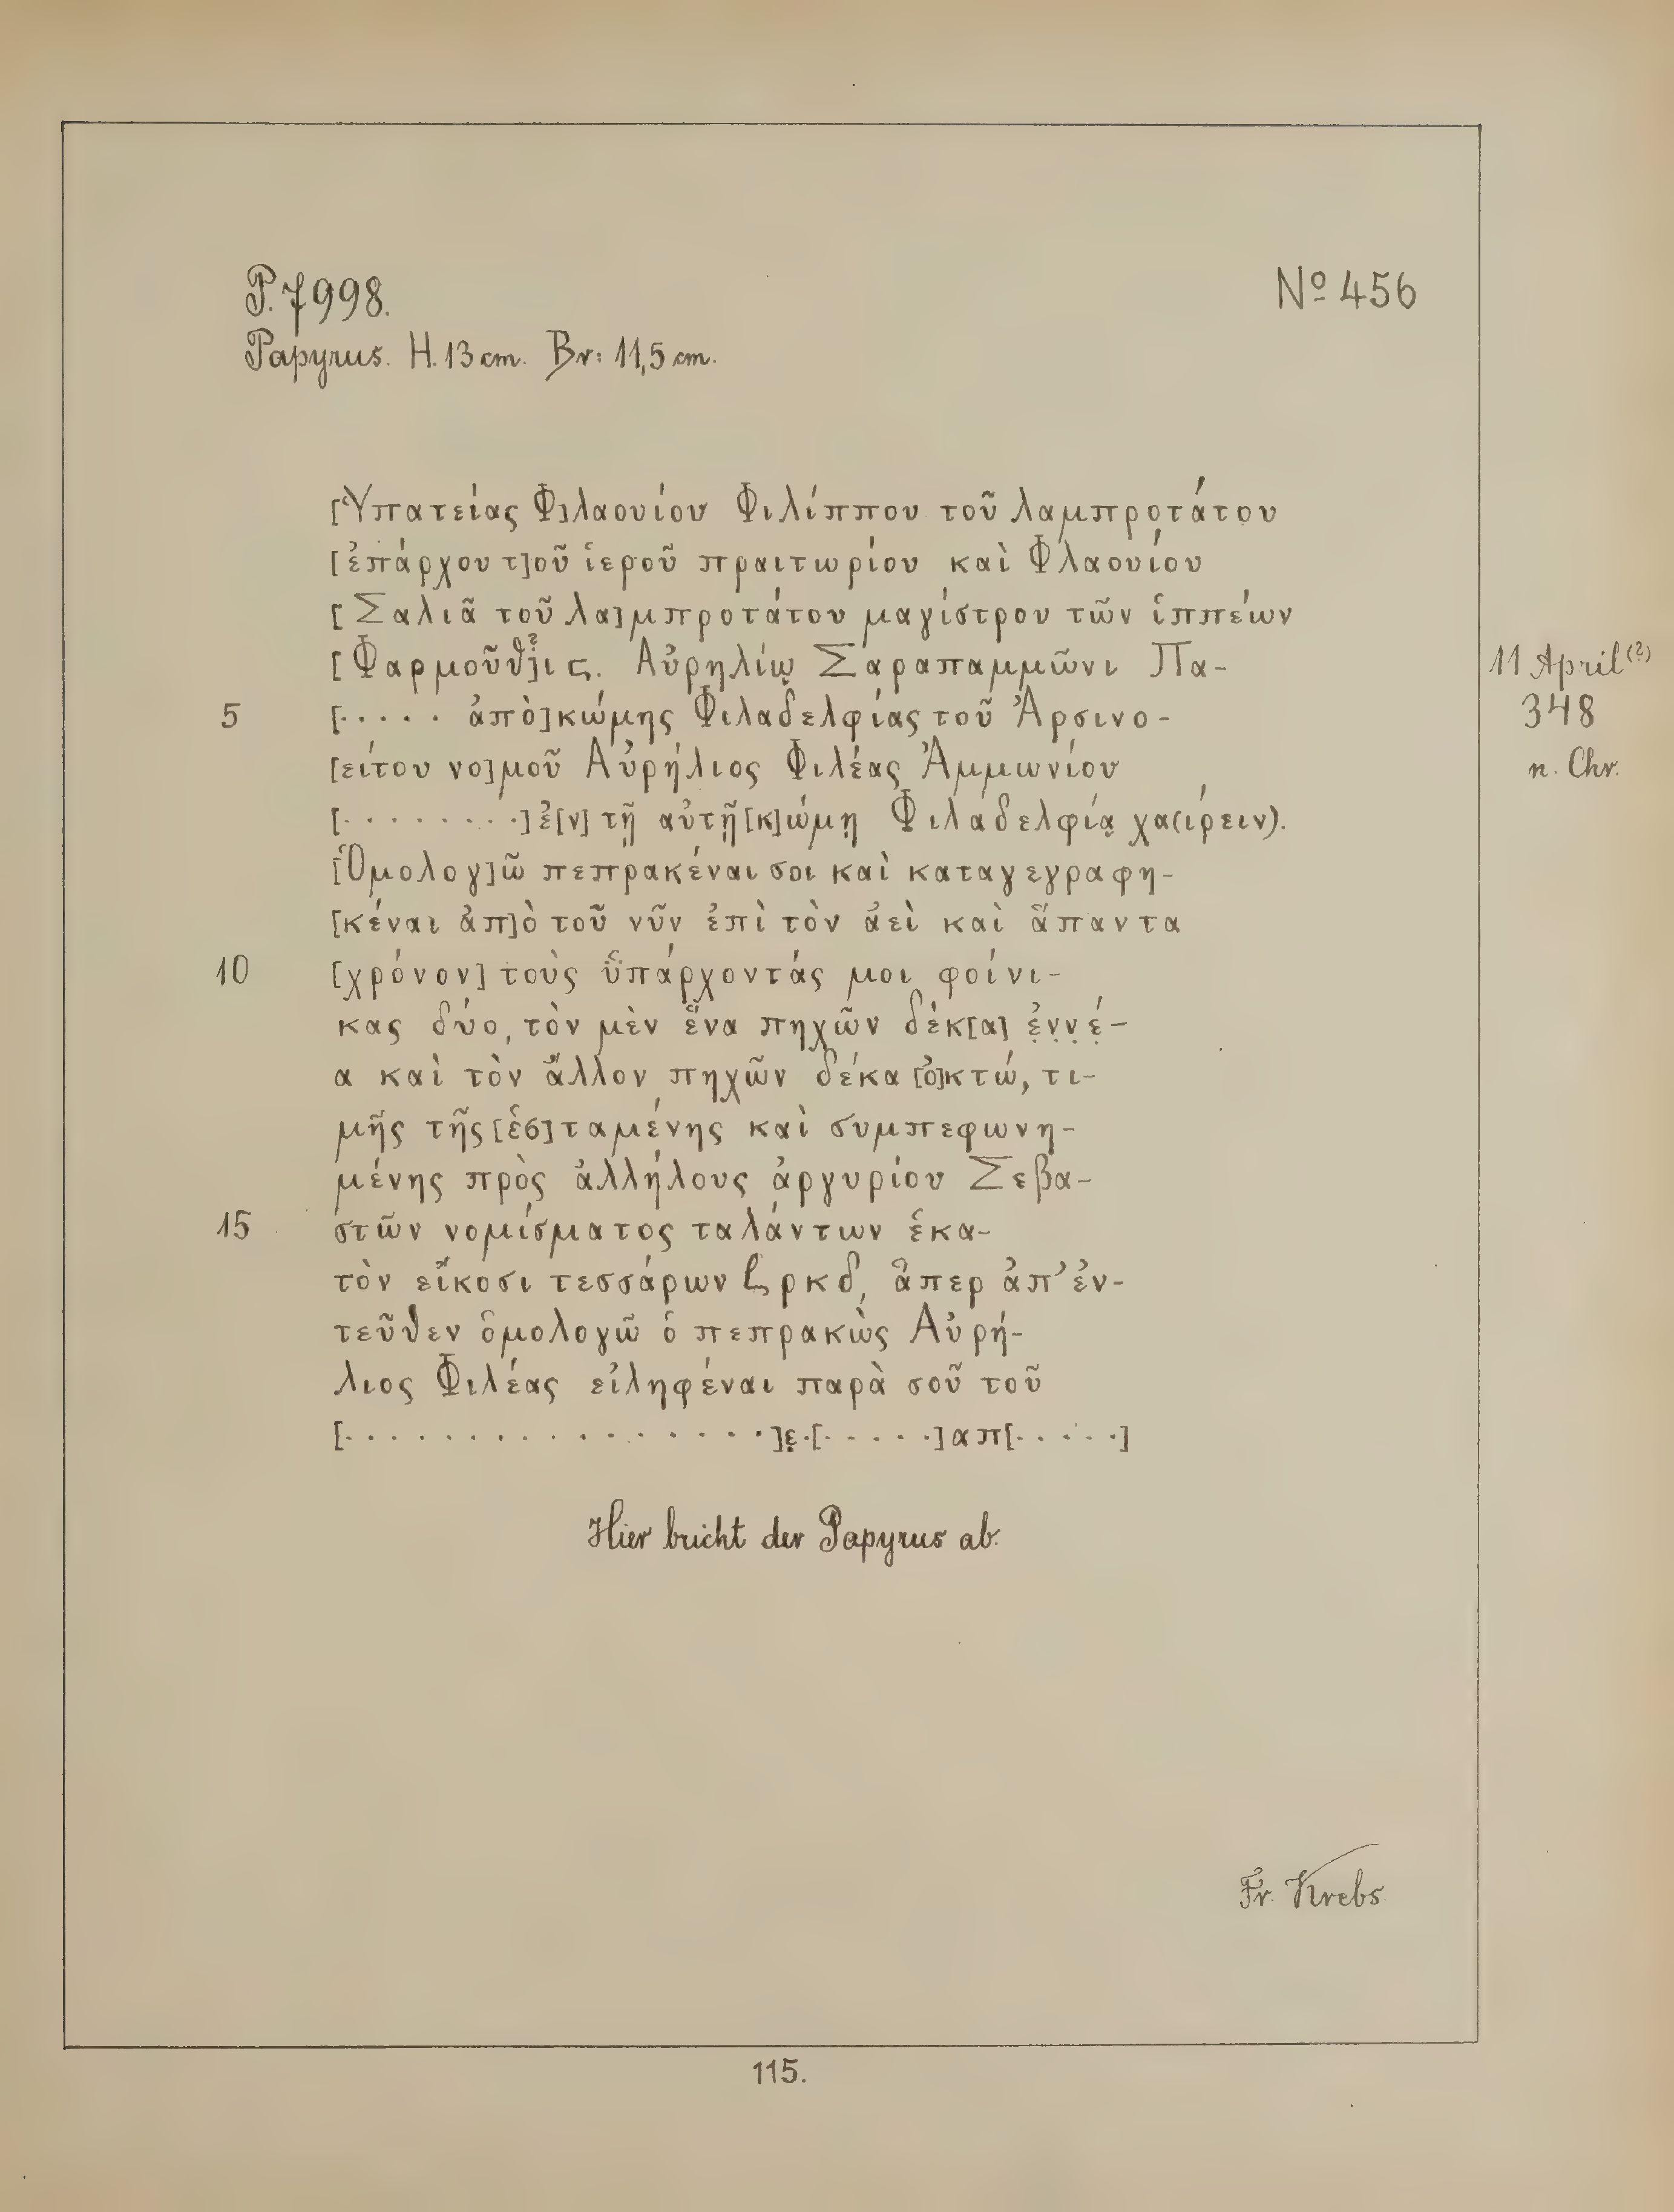 P. 7998.
Nº 456
Papyrus. H. 13 cm. Br: 11,5 cm.
[Ὑπατείας Φ]λαουίου Φιλίππου τοῦ λαμπροτάτου
[ἐπάρχου τ]οῦ ἱεροῦ πραιτωρίου καὶ Φλαουίου
[Σαλιᾶ τοῦ λα]μπροτάτου μαγίστρου τῶν ἱππέων
[Φαρμοῦθ(?)]ι ϛ. Αὐρηλίῳ Σαραπαμμῶνι Πα-
11 April (?)
348
n. Chr.
5 [..... ἀπὸ] κώμης Φιλαδελφίας τοῦ Ἀρσινο-
[είτου νο]μοῦ Αὐρήλιος Φιλέας Ἀμμωνίου
[.........] ἐ[ν] τῇ αὐτῇ [κ]ώμῃ Φιλαδελφίᾳ χα(ιρειν).
[Ὁμολογ]ῶ πεπρακέναι σοι καὶ καταγεγραφη-
[κέναι ἀπ]ὸ τοῦ νῦν ἐπὶ τὸν ἀεὶ καὶ ἅπαντα
10 [χρόνον] τοὺς ὑ̈πάρχοντάς μοι φοίνι-
κας δύο, τὸν μὲν ἕνα πηχῶν δέκ[α] ἐ̣ν̣ν̣έ̣-
α καὶ τὸν ἄλλον πηχῶν δέκα [ὀ]κτώ, τι-
μῆς τῆς [ἑσ]ταμένης καὶ συμπεφωνη-
μένης πρὸς ἀλλήλους ἀργυρίου Σεβα-
15 στῶν νομίσματος ταλάντων ἑκα-
τὸν εἴκοσι τεσσάρων 𐅺 ρκδ, ἅπερ ἀπ’ ἐν-
τεῦθεν ὁμολογῶ ὁ πεπρακὼς Αὐρή-
λιος Φιλέας εἰληφέναι παρὰ σοῦ τοῦ
[.................]ε̣.[......]απ[.....]
Hier bricht der Papyrus ab.
Fr. Krebs.
115.